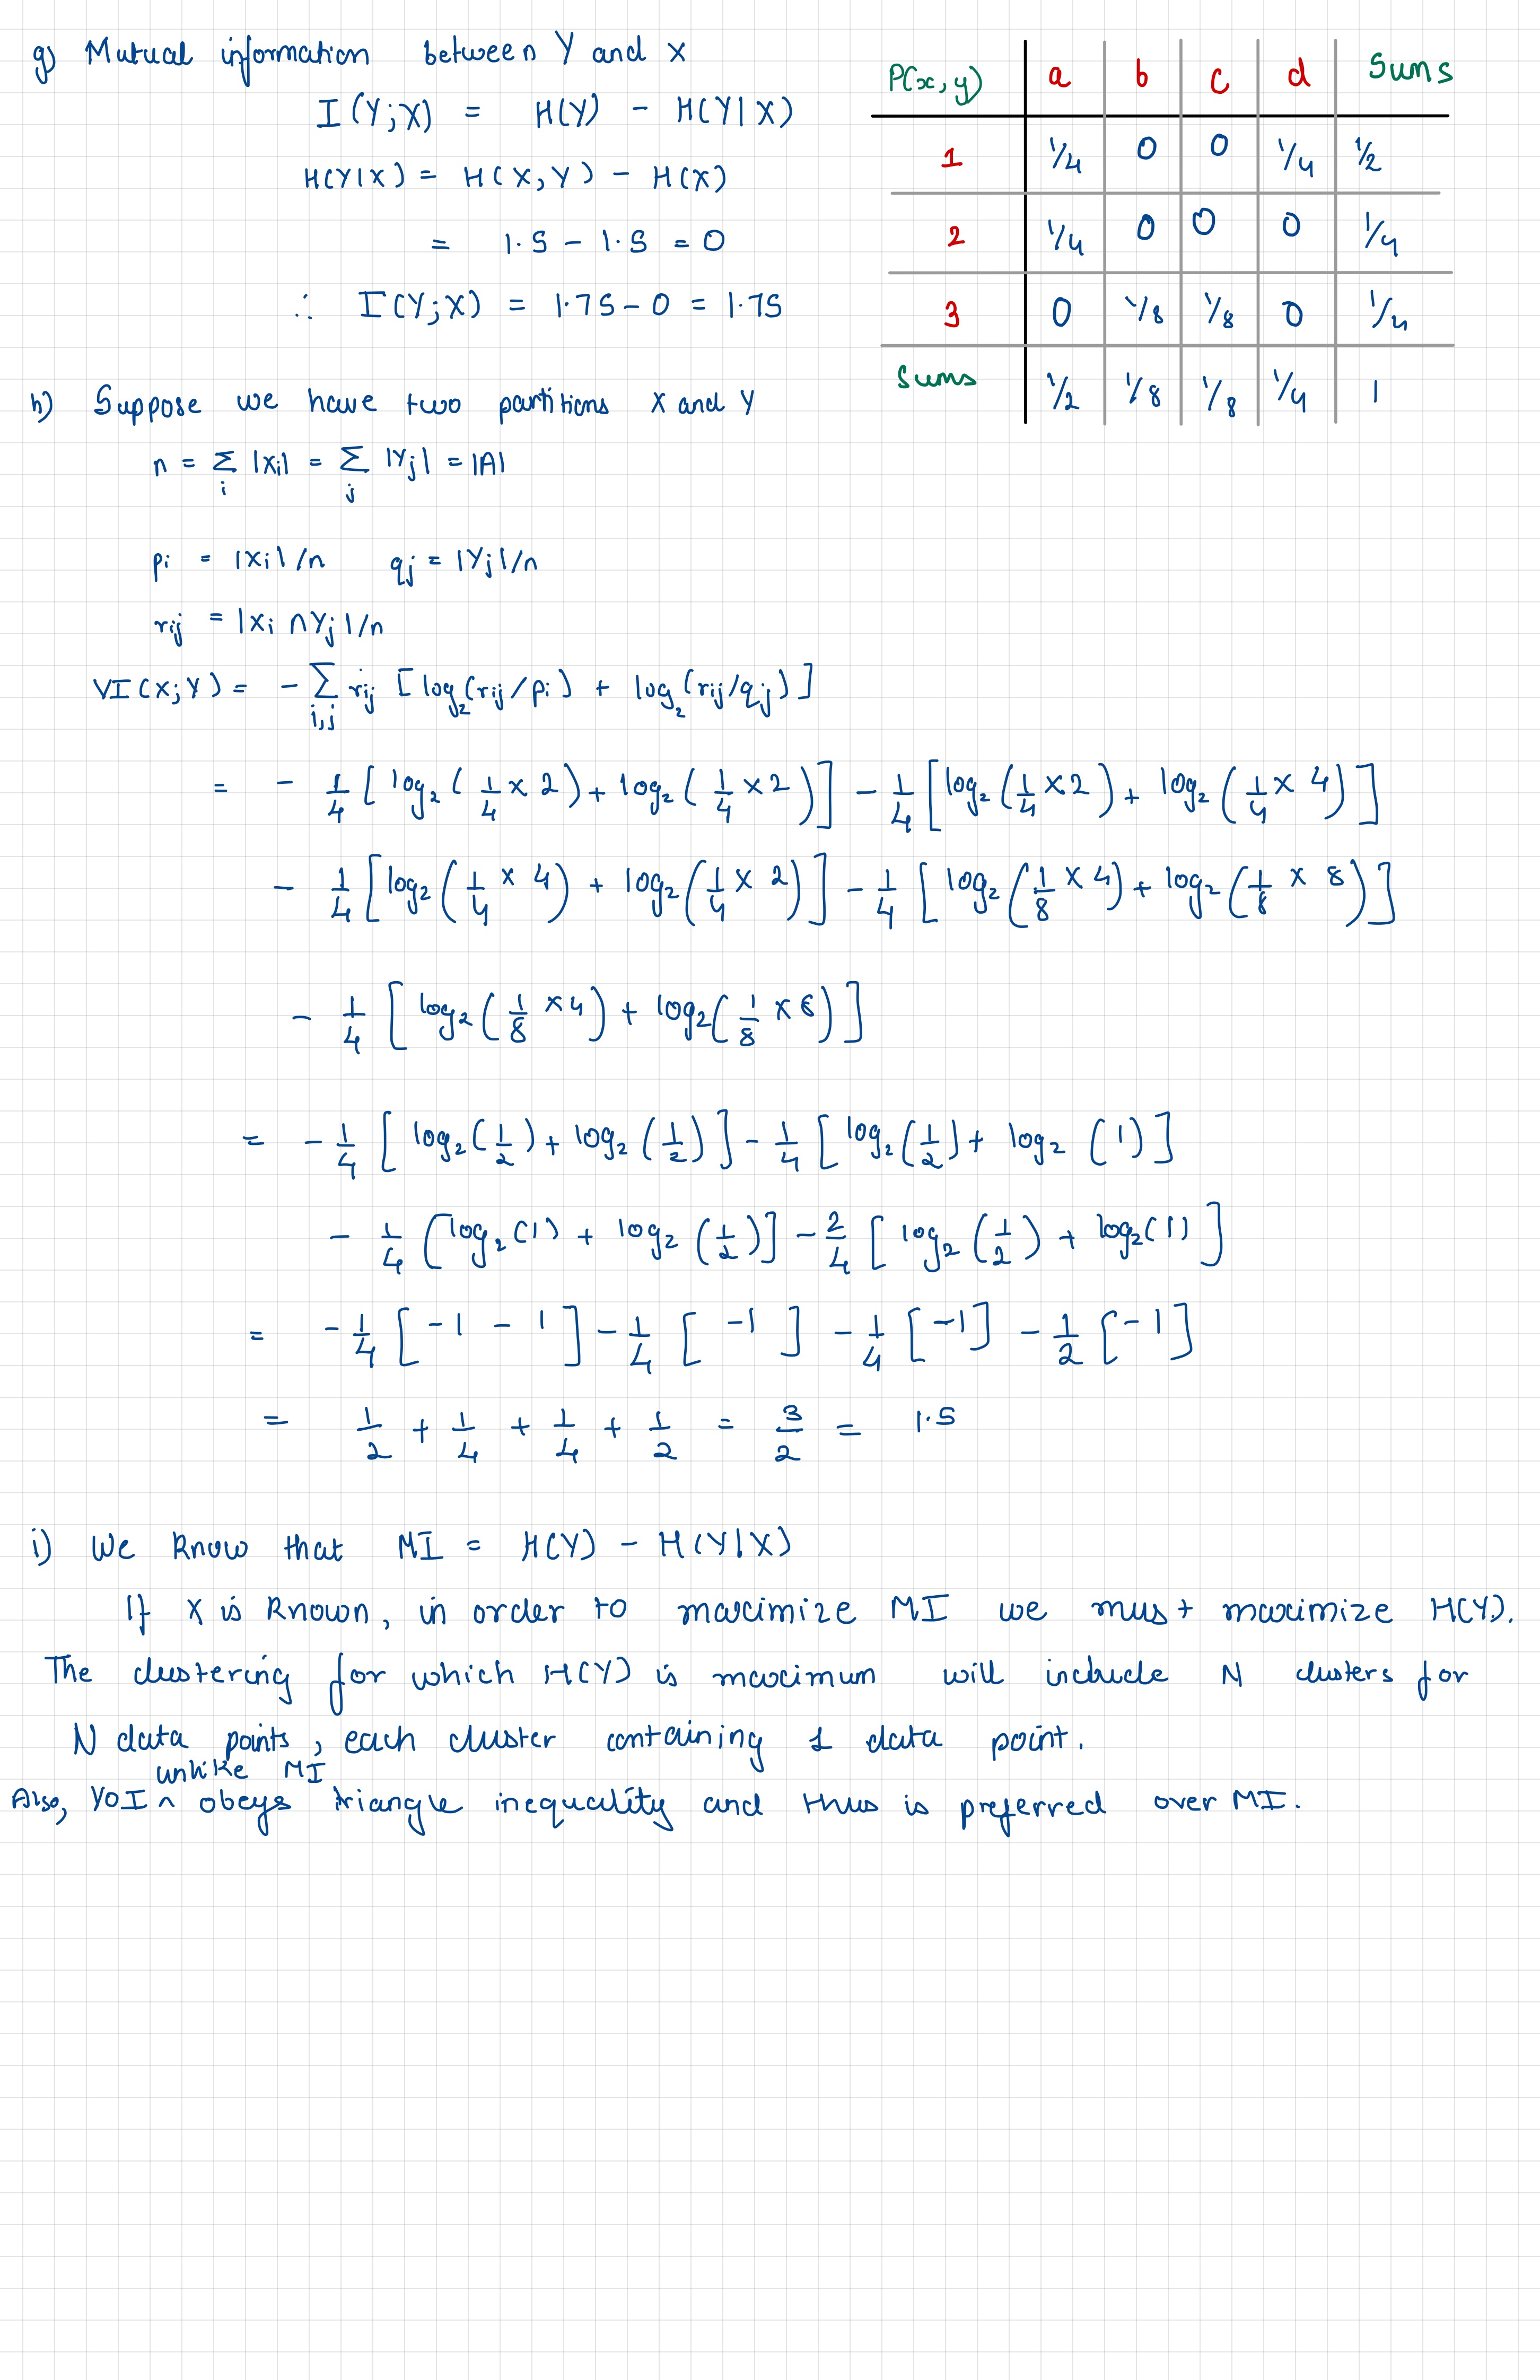 g) Mutual information between Y and X
I(Y;X) = H(Y) - H(Y|X)
H(Y|X) = H(X,Y) - H(X)
= 1.5 - 1.5 = 0
∴ I(Y;X) = 1.75 - 0 = 1.75
P(x,y) a b c d Sums
1 1/4 0 0 1/4 1/2
2 1/4 0 0 0 1/4
3 0 1/8 1/8 0 1/4
Sums 1/2 1/8 1/8 1/4 1
h) Suppose we have two partitions X and Y
n = Σ_i |Xi| = Σ_j |Yj| = |A|
pi = |Xi|/n qj = |Yj|/n
rij = |Xi ∩ Yj|/n
VI(X;Y) = - Σ_i,j rij [log₂(rij/pi) + log₂(rij/qj)]
= - 1/4 [log₂(1/4 × 2) + log₂(1/4 × 2)] - 1/4 [log₂(1/4 × 2) + log₂(1/4 × 4)]
- 1/4 [log₂(1/4 × 4) + log₂(1/4 × 2)] - 1/4 [log₂(1/8 × 4) + log₂(1/8 × 8)]
- 1/4 [log₂(1/8 × 4) + log₂(1/8 × 8)]
= - 1/4 [log₂(1/2) + log₂(1/2)] - 1/4 [log₂(1/2) + log₂(1)]
- 1/4 [log₂(1) + log₂(1/2)] - 2/4 [log₂(1/2) + log₂(1)]
= - 1/4 [-1 - 1] - 1/4 [-1] - 1/4 [-1] - 1/2 [-1]
= 1/2 + 1/4 + 1/4 + 1/2 = 3/2 = 1.5
i) We know that MI = H(Y) - H(Y|X)
If X is known, in order to maximize MI we must maximize H(Y).
The clustering for which H(Y) is maximum will include N clusters for
N data points, each cluster containing 1 data point.
unlike MI
Also, VOI ^ obeys triangle inequality and thus is preferred over MI.